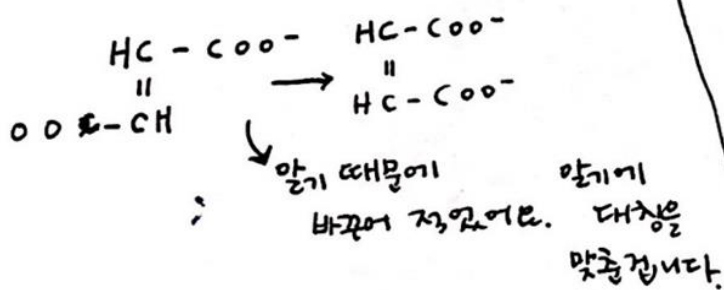 HC - COO⁻
||
OOC - CH
→
HC - COO⁻
||
HC - COO⁻
알기 때문에
바꾸어 적었어요.
알기에
대칭을
맞춘겁니다.